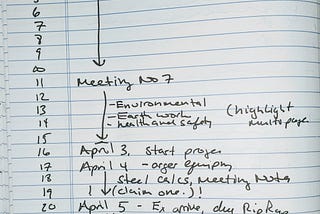 5
6
7
8
9
10
11 Meeting No 7
12 - Environmental
13 - Earth work (highlight
14 - Health and safety multi pages
15
16 April 3, start
17 April 4 - order equipm
18 Steel calcs, Meeting Notes
19 (claim one.)!
20 April 5 - arrive,